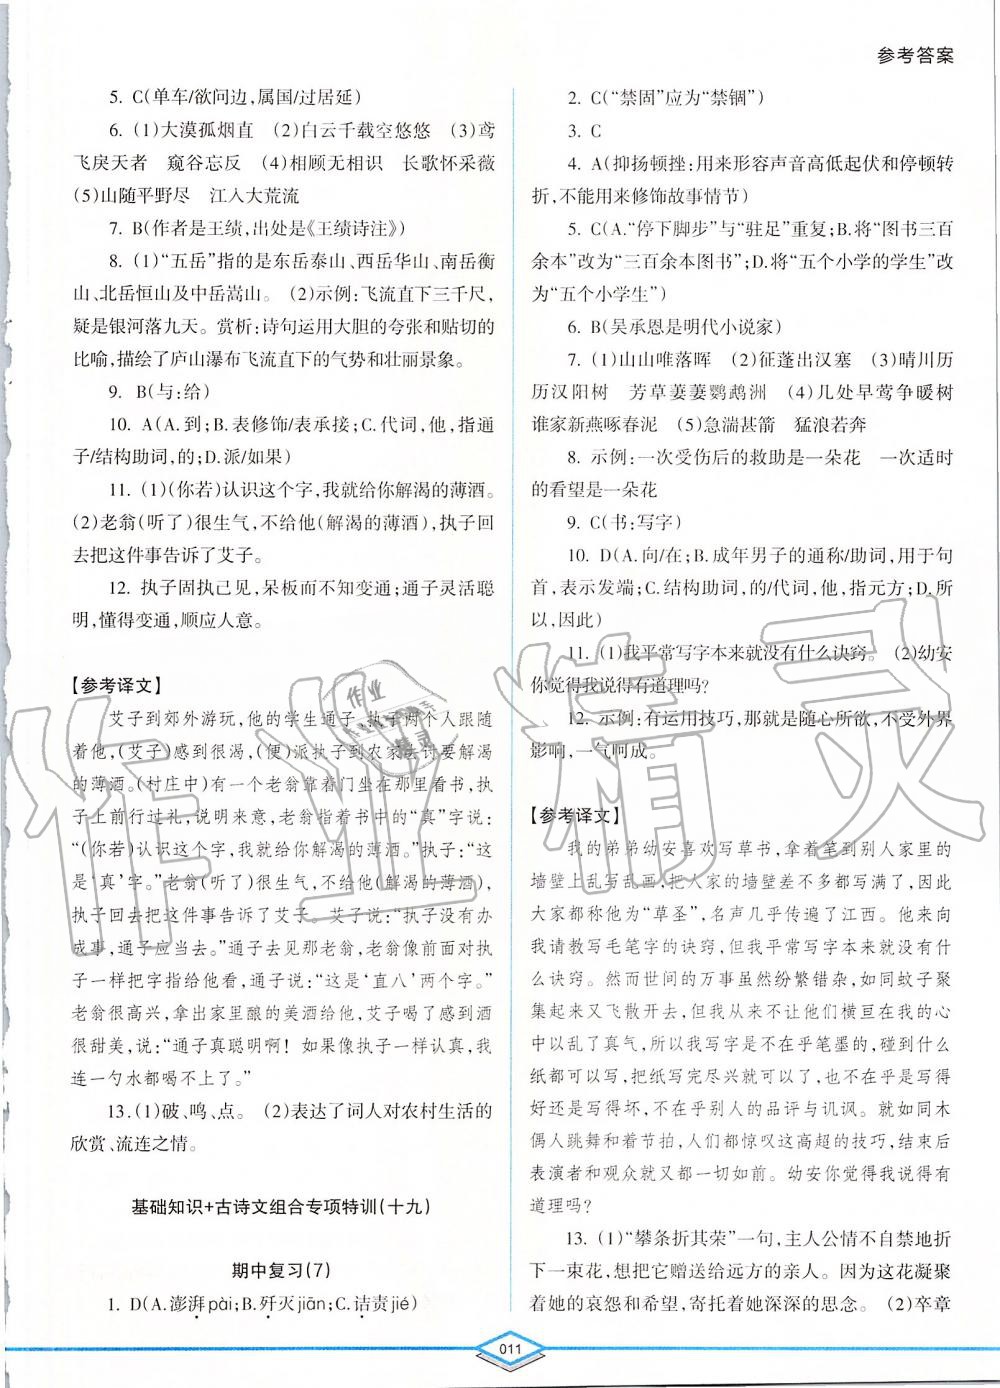 参考答案
5. C(单车/欲问边,属国/过居延)
6. (1)大漠孤烟直 (2)白云千载空悠悠 (3)鸢
飞戾天者 窥谷忘反 (4)相顾无相识 长歌怀采薇
(5)山随平野尽 江入大荒流
7. B(作者是王绩,出处是《王绩诗注》)
8. (1)“五岳”指的是东岳泰山、西岳华山、南岳衡
山、北岳恒山及中岳嵩山。 (2)示例:飞流直下三千尺,
疑是银河落九天。赏析:诗句运用大胆的夸张和贴切的
比喻,描绘了庐山瀑布飞流直下的气势和壮丽景象。
9. B(与:给)
10. A(A.到;B.表修饰/表承接;C.代词,他,指通
子/结构助词,的;D.派/如果)
11. (1)(你若)认识这个字,我就给你解渴的薄酒。
(2)老翁(听了)很生气,不给他(解渴的薄酒),执子回
去把这件事告诉了艾子。
12. 执子固执己见,呆板而不知变通;通子灵活聪
明,懂得变通,顺应人意。
【参考译文】
艾子到郊外游玩,他的学生通子、执子两个人跟随
着他,(艾子)感到很渴,(便)派执子到农家去讨要解渴
的薄酒。(村庄中)有一个老翁靠着门坐在那里看书,执
子上前行过礼,说明来意,老翁指着书中的“真”字说:
“(你若)认识这个字,我就给你解渴的薄酒。”执子:“这
是‘真’字。”老翁(听了)很生气,不给他(解渴的薄酒),
执子回去把这件事告诉了艾子。艾子说:“执子没有办
成事,通子应当去。”通子去见那老翁,老翁像前面对执
子一样把字指给他看,通子说:“这是‘直八’两个字。”
老翁很高兴,拿出家里酿的美酒给他,艾子喝了感到酒
很甜美,说:“通子真聪明啊!如果像执子一样认真,我
连一勺水都喝不上了。”
13.(1)破、鸣、点。 (2)表达了词人对农村生活的
欣赏、流连之情。
基础知识+古诗文组合专项特训(十九)
期中复习(7)
1. D(A.澎湃pài;B.歼灭jiān;C.诘责jié)
2. C(“禁固”应为“禁锢”)
3. C
4. A(抑扬顿挫:用来形容声音高低起伏和停顿转
折,不能用来修饰故事情节)
5. C(A.“停下脚步”与“驻足”重复;B.将“图书三百
余本”改为“三百余本图书”;D.将“五个小学的学生”改
为“五个小学生”)
6. B(吴承恩是明代小说家)
7. (1)山山唯落晖 (2)征蓬出汉塞 (3)晴川历
历汉阳树 芳草萋萋鹦鹉洲 (4)几处早莺争暖树
谁家新燕啄春泥 (5)急湍甚箭 猛浪若奔
8. 示例:一次受伤后的救助是一朵花 一次适时
的看望是一朵花
9. C(书:写字)
10. D(A.向/在;B.成年男子的通称/助词,用于句
首,表示发端;C.结构助词,的/代词,他,指元方;D.所
以,因此)
11. (1)我平常写字本来就没有什么诀窍。 (2)幼安
你觉得我说得有道理吗?
12. 示例:有运用技巧,那就是随心所欲,不受外界
影响,一气呵成。
【参考译文】
我的弟弟幼安喜欢写草书,拿着笔到别人家里的
墙壁上乱写乱画,把人家的墙壁差不多都写满了,因此
大家都称他为“草圣”,名声几乎传遍了江西。他来向
我请教写毛笔字的诀窍,但我平常写字本来就没有什
么诀窍。然而世间的万事虽然纷繁错杂,如同蚊子聚
集起来又飞散开去,但我从来不让他们横亘在我的心
中以乱了真气,所以我写字是不在乎笔墨的,碰到什么
纸都可以写,把纸写完尽兴就可以了,也不在乎是写得
好还是写得坏,不在乎别人的品评与讥讽。就如同木
偶人跳舞和着节拍,人们都惊叹这高超的技巧,结束后
表演者和观众就又都一切如前。幼安你觉得我说得有
道理吗?
13. (1)“攀条折其荣”一句,主人公情不自禁地折
下一束花,想把它赠送给远方的亲人。因为这花凝聚
着她的哀怨和希望,寄托着她深深的思念。 (2)卒章
011
作业精灵
作业
精灵